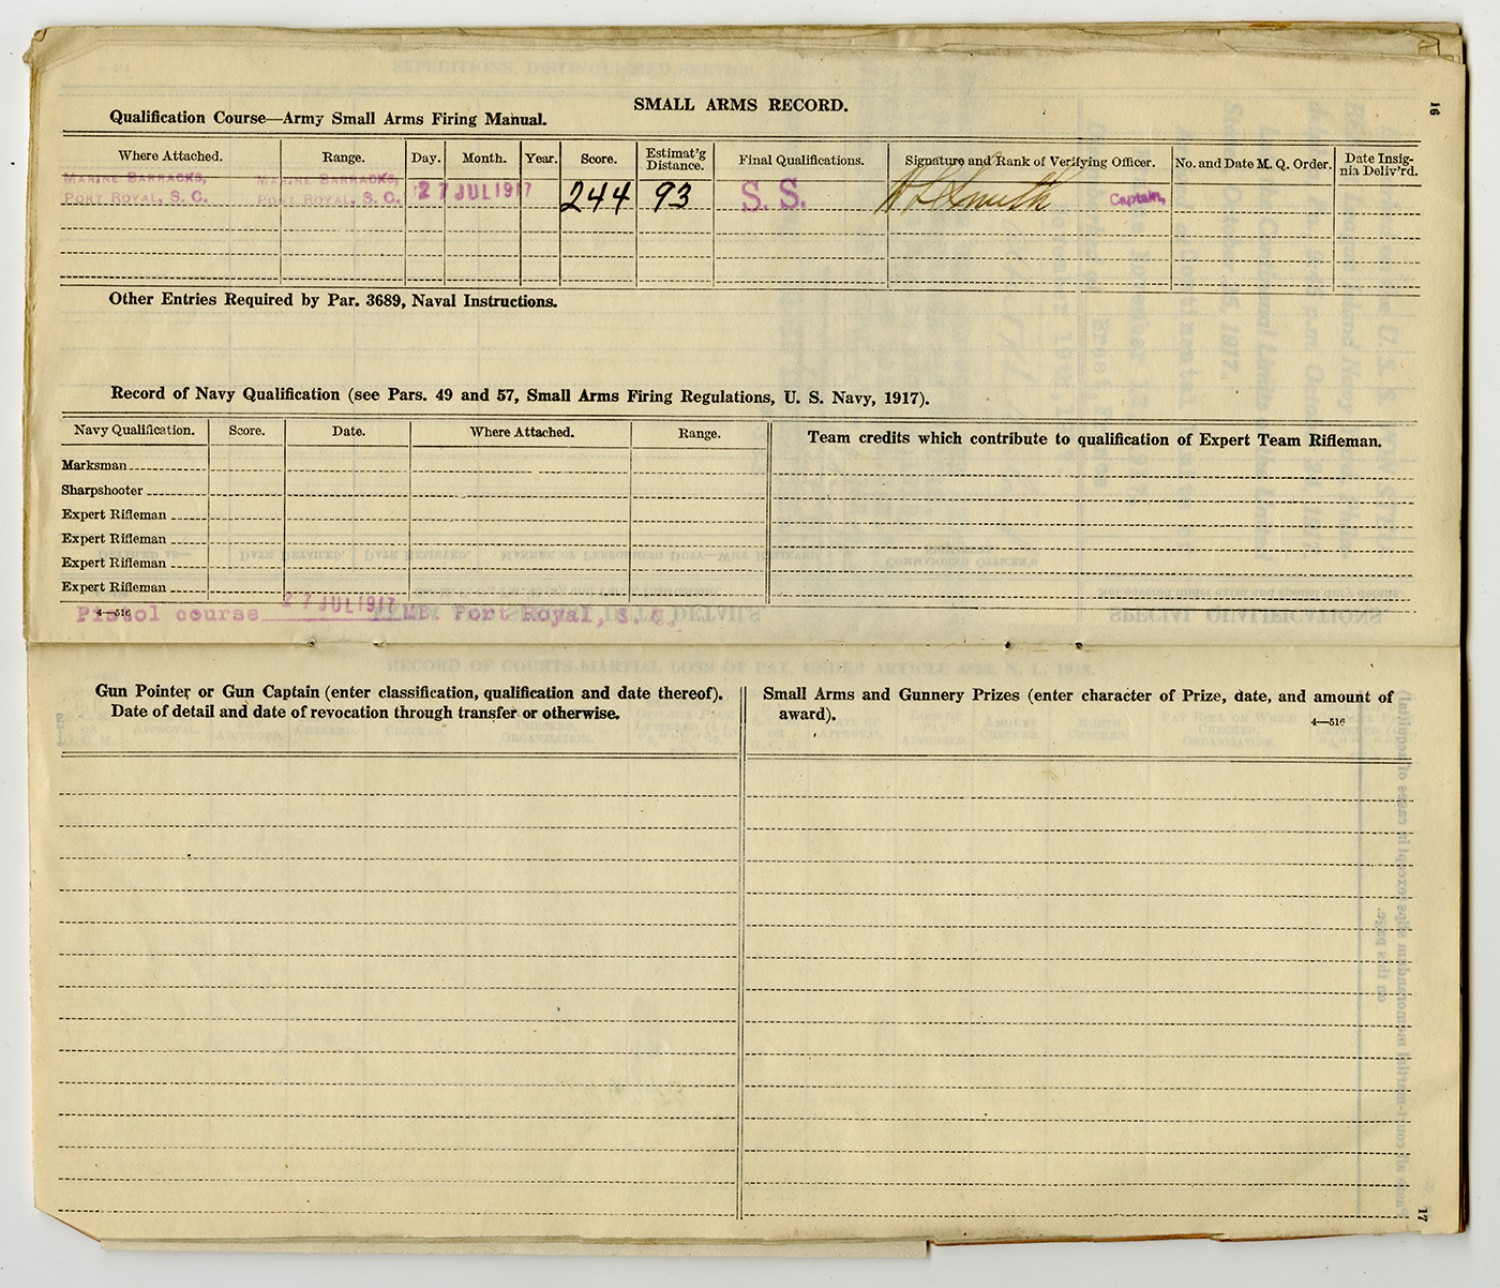 16
SMALL ARMS RECORD.
Qualification Course—Army Small Arms Firing Manual.
Where Attached. Range. Day. Month. Year. Score. Estimat'g Distance. Final Qualifications. Signature and Rank of Verifying Officer. No. and Date M. Q. Order. Date Insignia Deliv'rd.
MARINE BARRACKS, MARINE BARRACKS,
PORT ROYAL, S. C. PORT ROYAL, S. C. 27 JUL 1917 244 93 S. S. Smith Captain,
Other Entries Required by Par. 3689, Naval Instructions.
Record of Navy Qualification (see Pars. 49 and 57, Small Arms Firing Regulations, U. S. Navy, 1917).
Navy Qualification. Score. Date. Where Attached. Range. Team credits which contribute to qualification of Expert Team Rifleman.
Marksman
Sharpshooter
Expert Rifleman
Expert Rifleman
Expert Rifleman
Expert Rifleman
4—516
Pistol course 27 JUL 1917 MB. Port Royal, S. C.
Gun Pointer or Gun Captain (enter classification, qualification and date thereof).
Date of detail and date of revocation through transfer or otherwise.
Small Arms and Gunnery Prizes (enter character of Prize, date, and amount of
award). 4—516
17